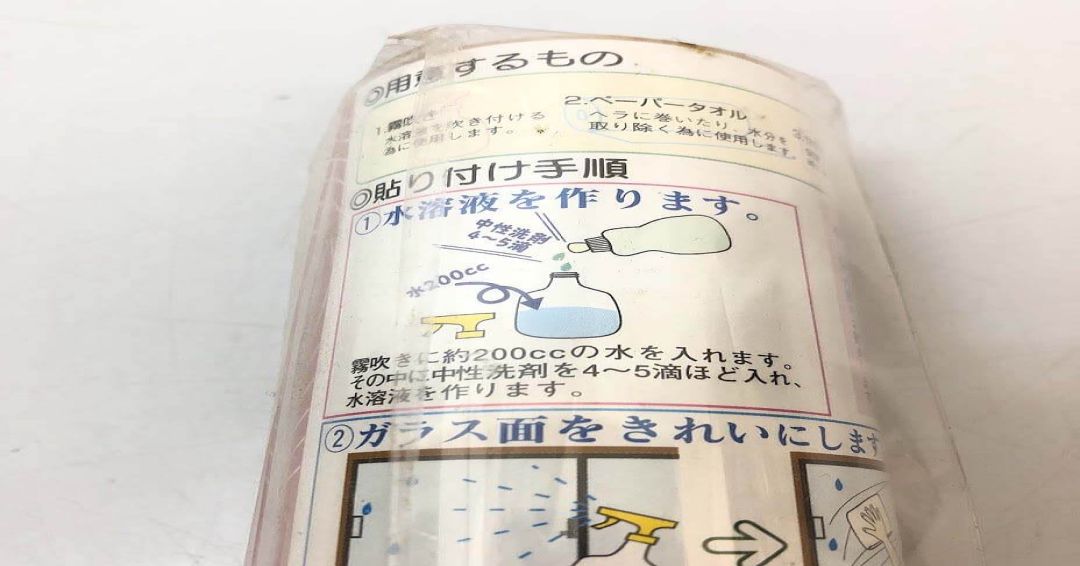 ◎用意するもの
1.霧吹き
水溶液を吹き付ける
為に使用します。
2.ペーパータオル
ヘラに巻いたり、水分を
取り除く為に使用します
◎貼り付け手順
①水溶液を作ります。
中性洗剤
4～5滴
水200cc
霧吹きに約200ccの水を入れます。
その中に中性洗剤を4～5滴ほど入れ、
水溶液を作ります。
②ガラス面をきれいにします